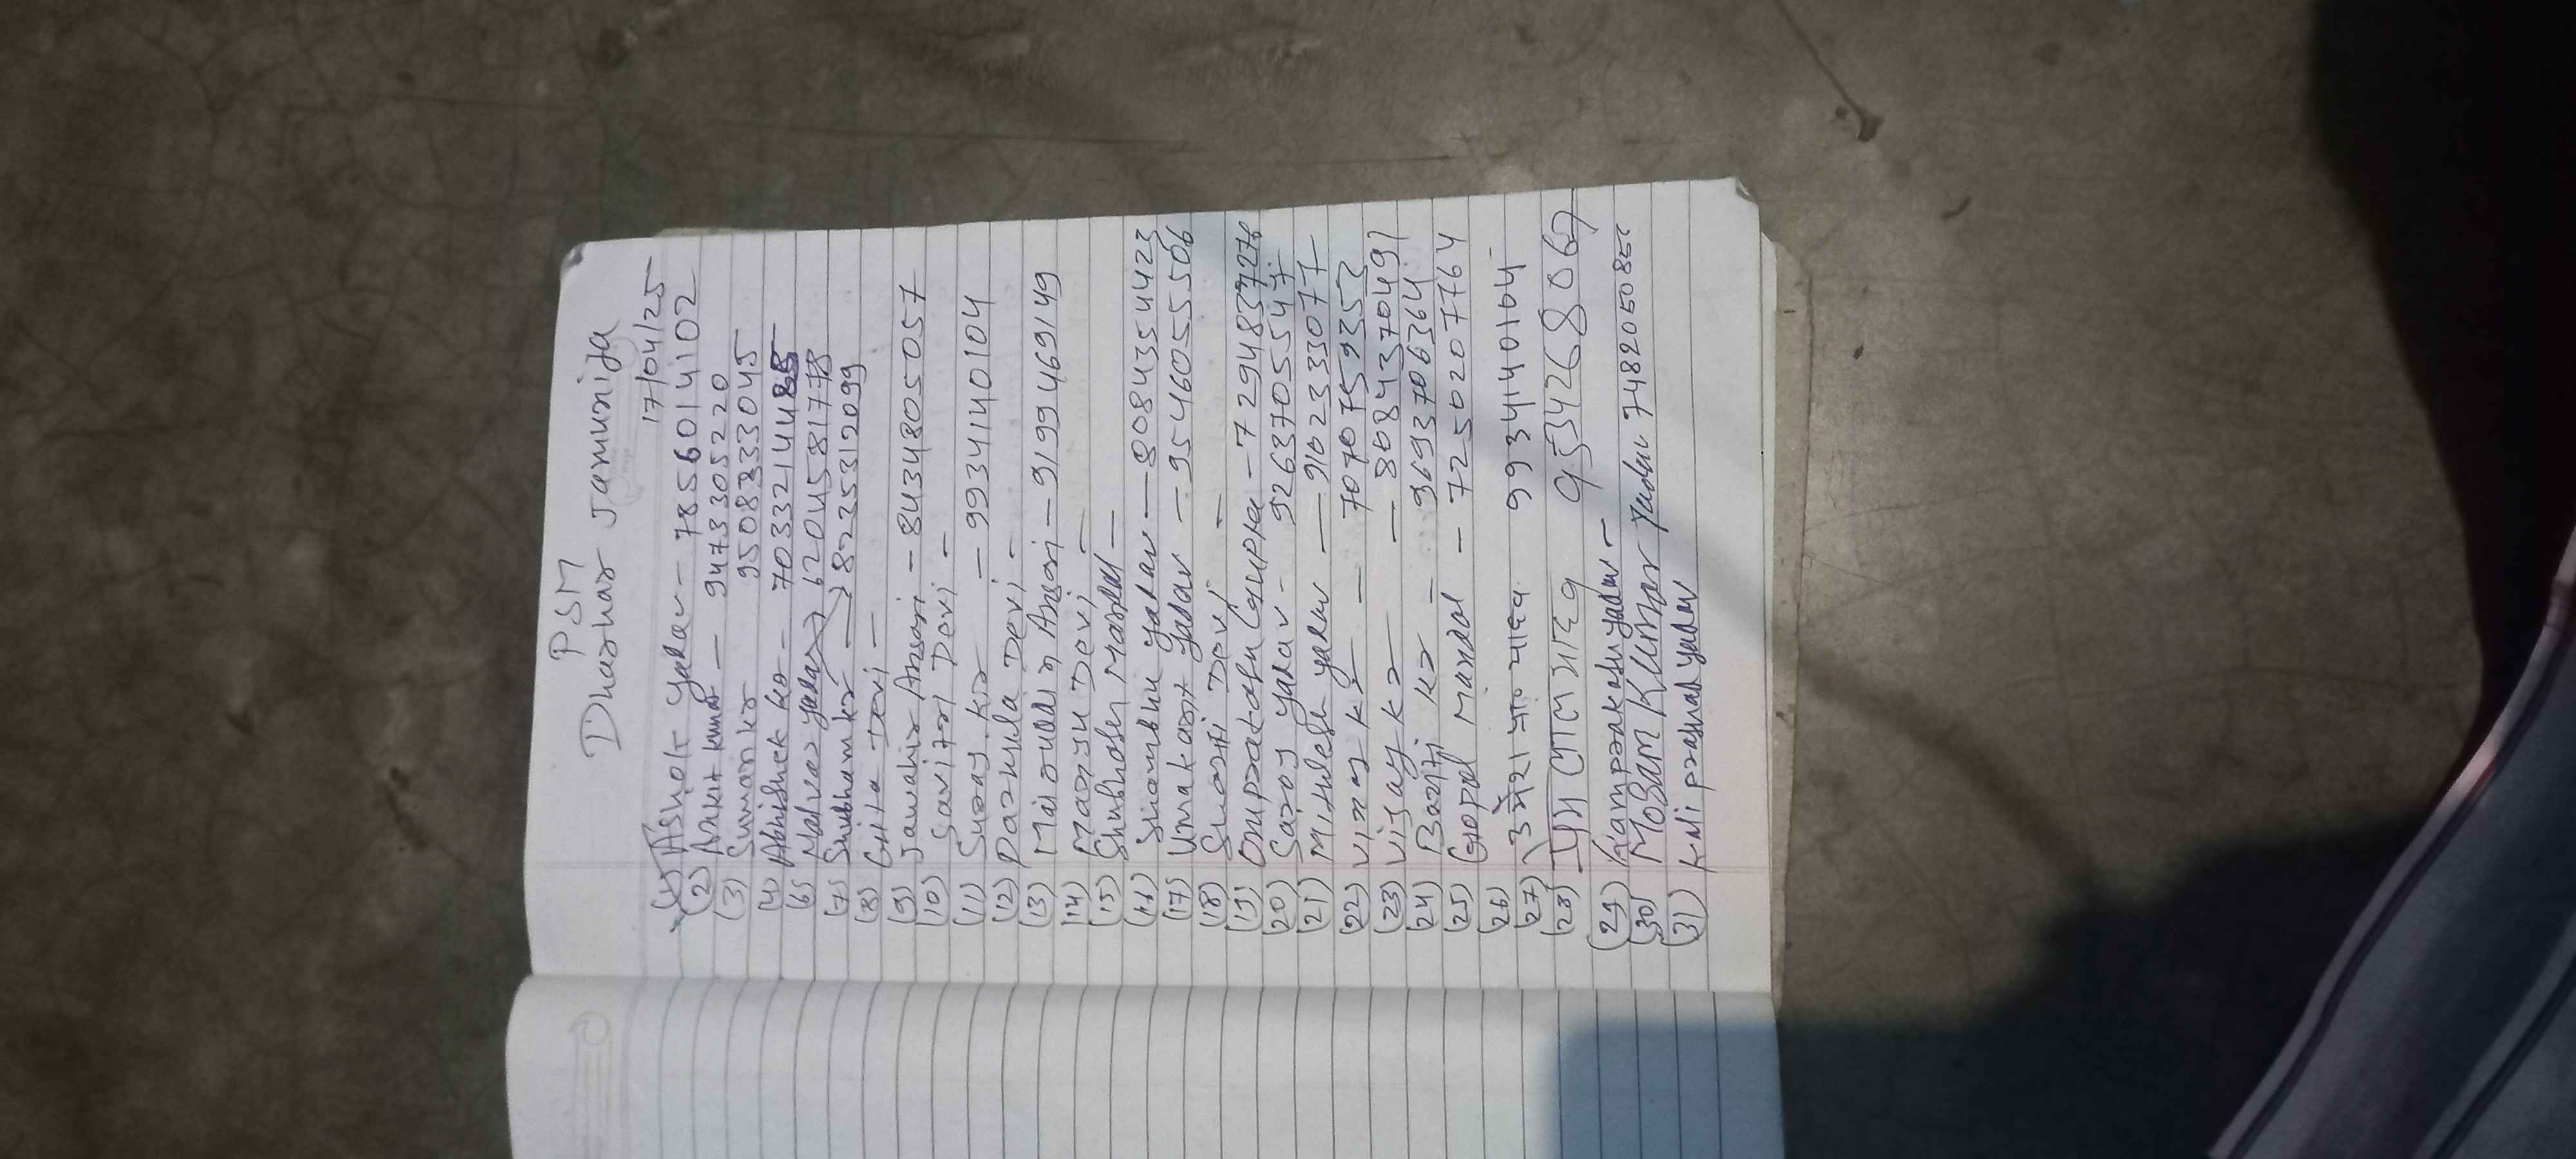 PSM
Dharhar Jamunija
17/04/25
(1) Ashok Yadav - 7856014102
(2) Ankit kumar - 9473305220
(3) Suman kr 9508333045
(4) Abhishek kr - 7033214485
(6) Yadav 6204581778
(7) Shubham kr 8235312099
(8) Gita Devi -
(9) Jawahir Ansari - 8434805057
(10) Savitri Devi -
(11) Suraj kr - 9934140104
(12) Parmila Devi -
(13) Ansari - 9199469149
(14) Manju Devi -
(15) Shubhash Mandal -
(16) Shambhu Yadav - 8084354423
(17) Umakant Yadav - 9546055506
(18) Devi -
(19) Omprakash Gupta -
(20) Saroj Yadav - 9263705547
(21) Mithlesh Yadav - 9102333077
(22) Vinay kr - 7070759352
(23) Vijay kr - 8084370491
(24) kr - 9693706364
(25) Gopal Mandal - 7250207764
(26)
(27) उमेश प्र० यादव 9934140104
(28) 9534268067
(29) Ramprakash Yadav -
(30) Mosam Kumar Yadav
(31) Kali prashad Yadav